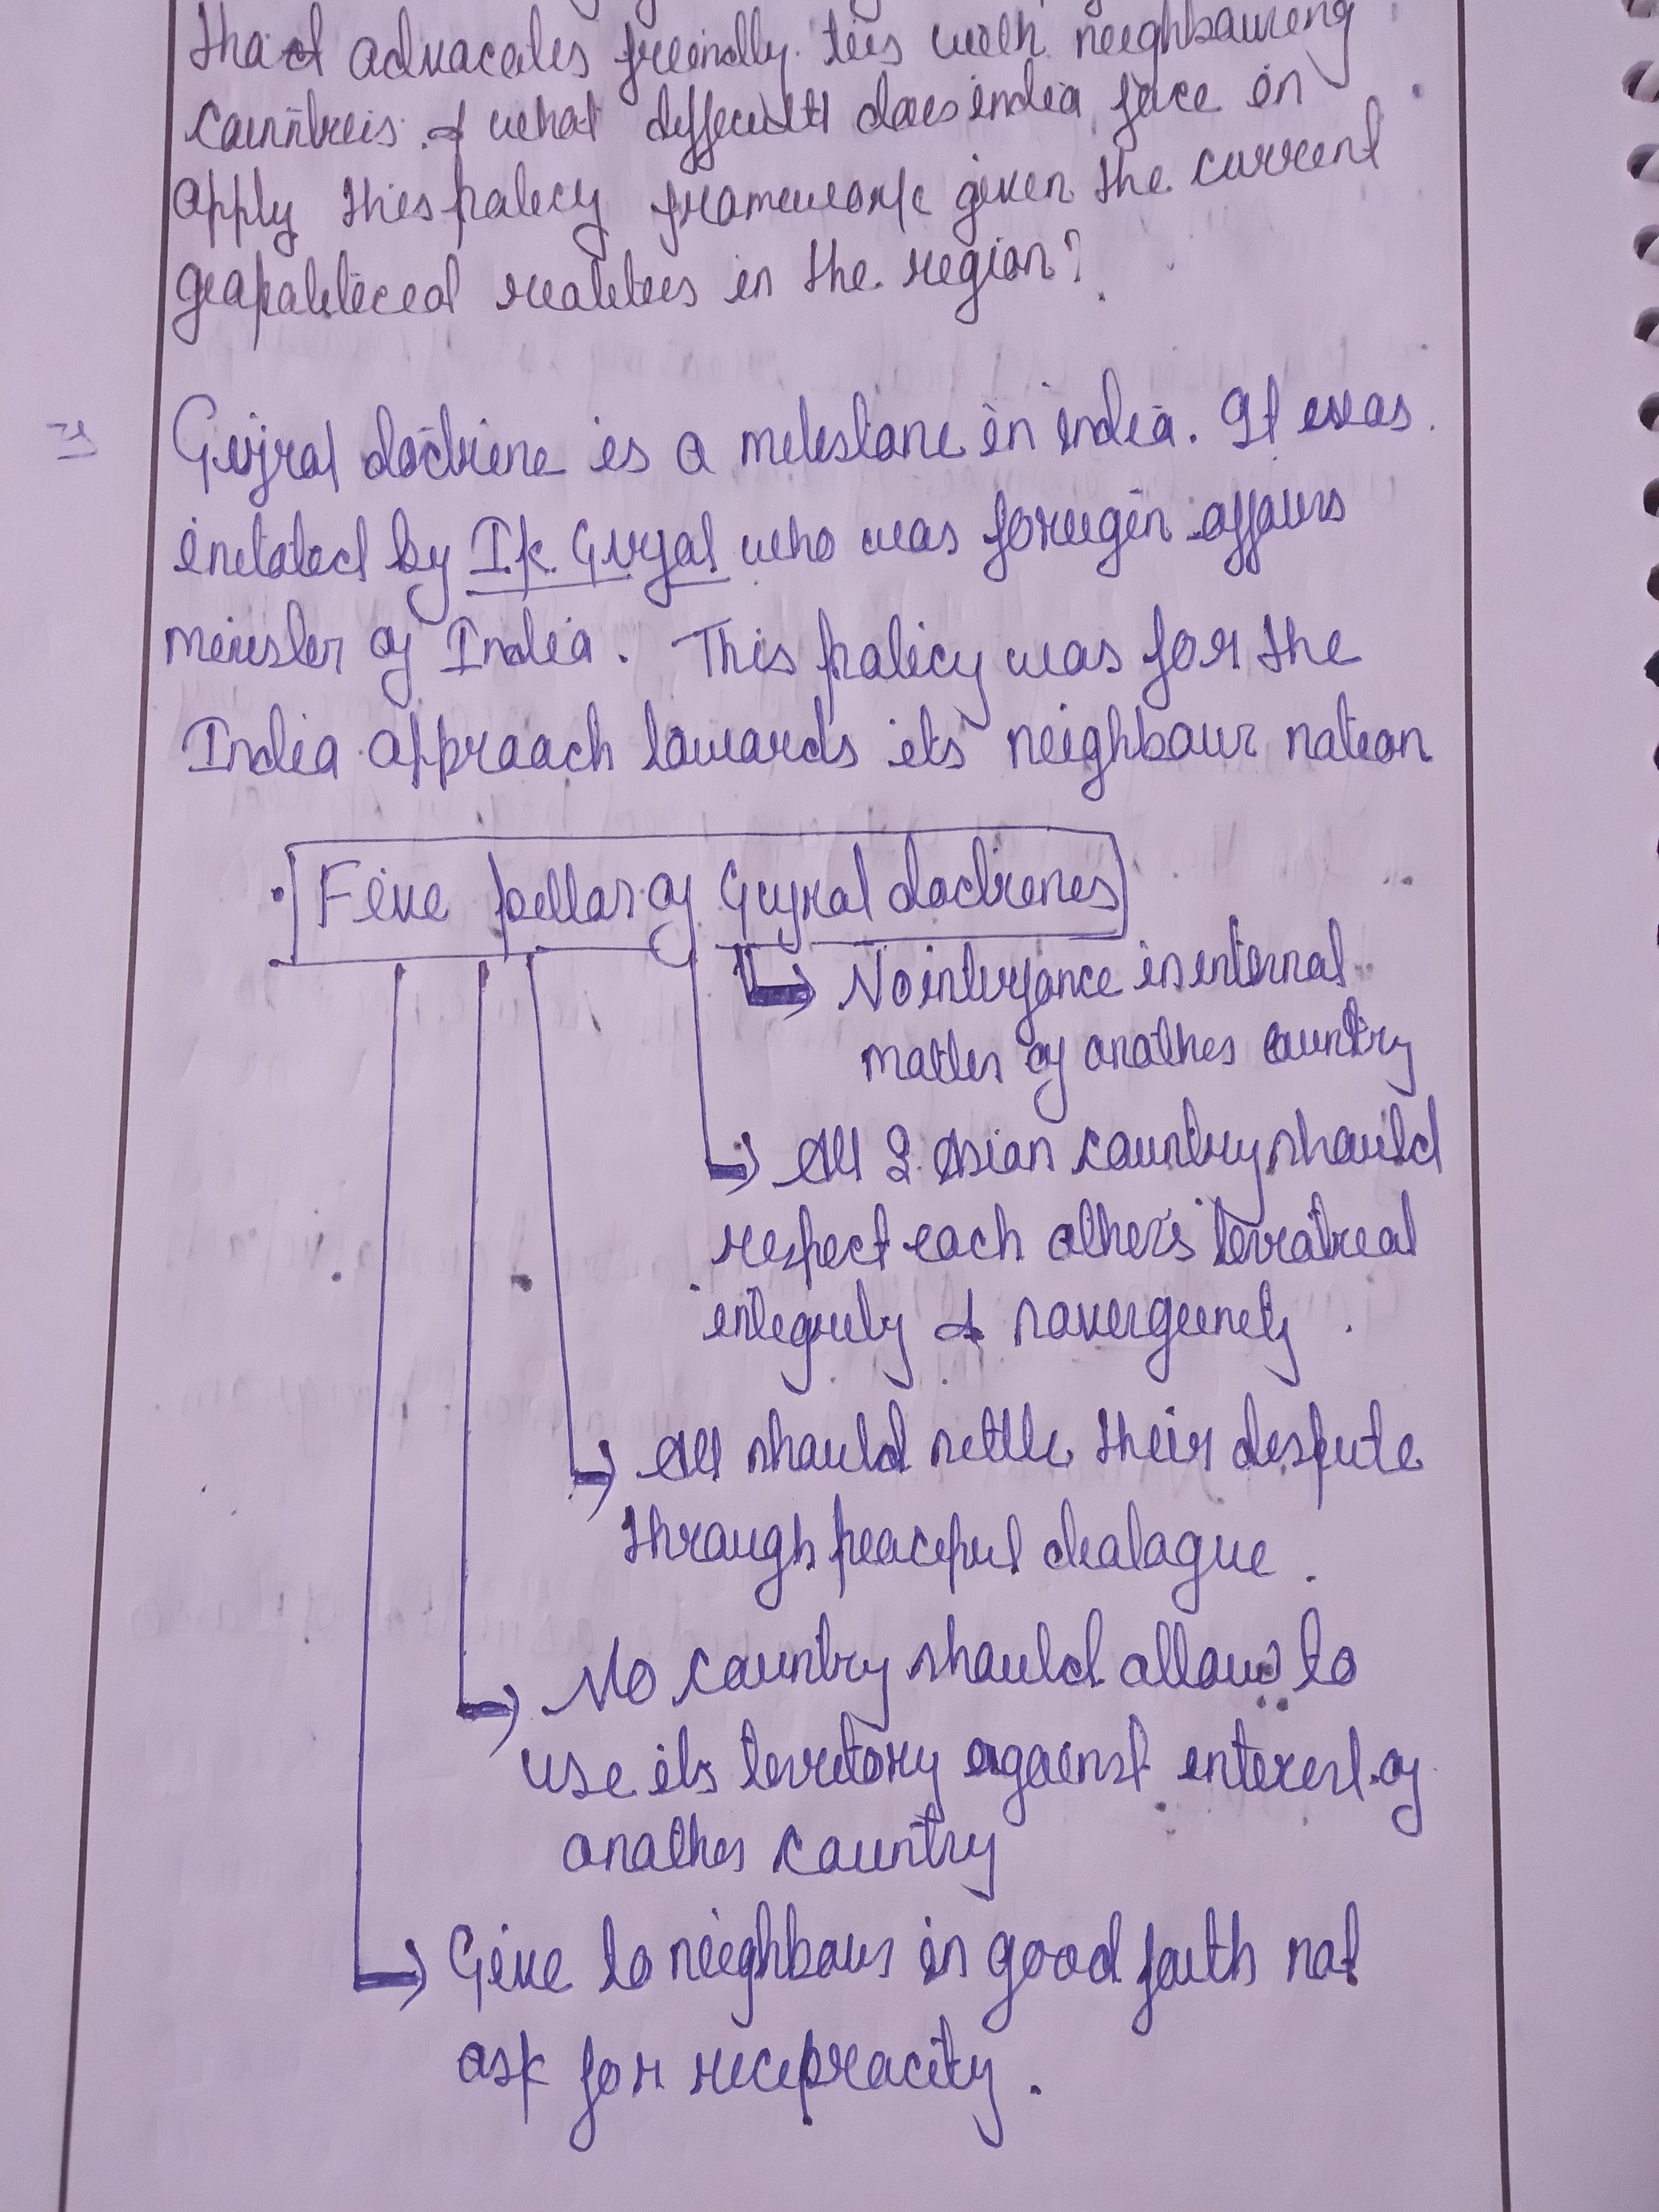 that advocates friendly ties with neighbouring
countries & what difficulti does india face in
apply this policy framework given the current
geopolitical realities in the region?
Gujral doctrine is a milestone in india. It was
initated by I.k. Gujral who was foreign affairs
minister of India. This policy was for the
India approach towards its neighbour nation
Five pillar of Gujral doctrines
No interfance in internal
matter of another country
All S. Asian country should
respect each other's
integrity &
All should settle their dispute
through peaceful dialogue.
No country should allow to
use its territory against interest of
another country
Give to neighbour in good faith not
ask for reciprocity.